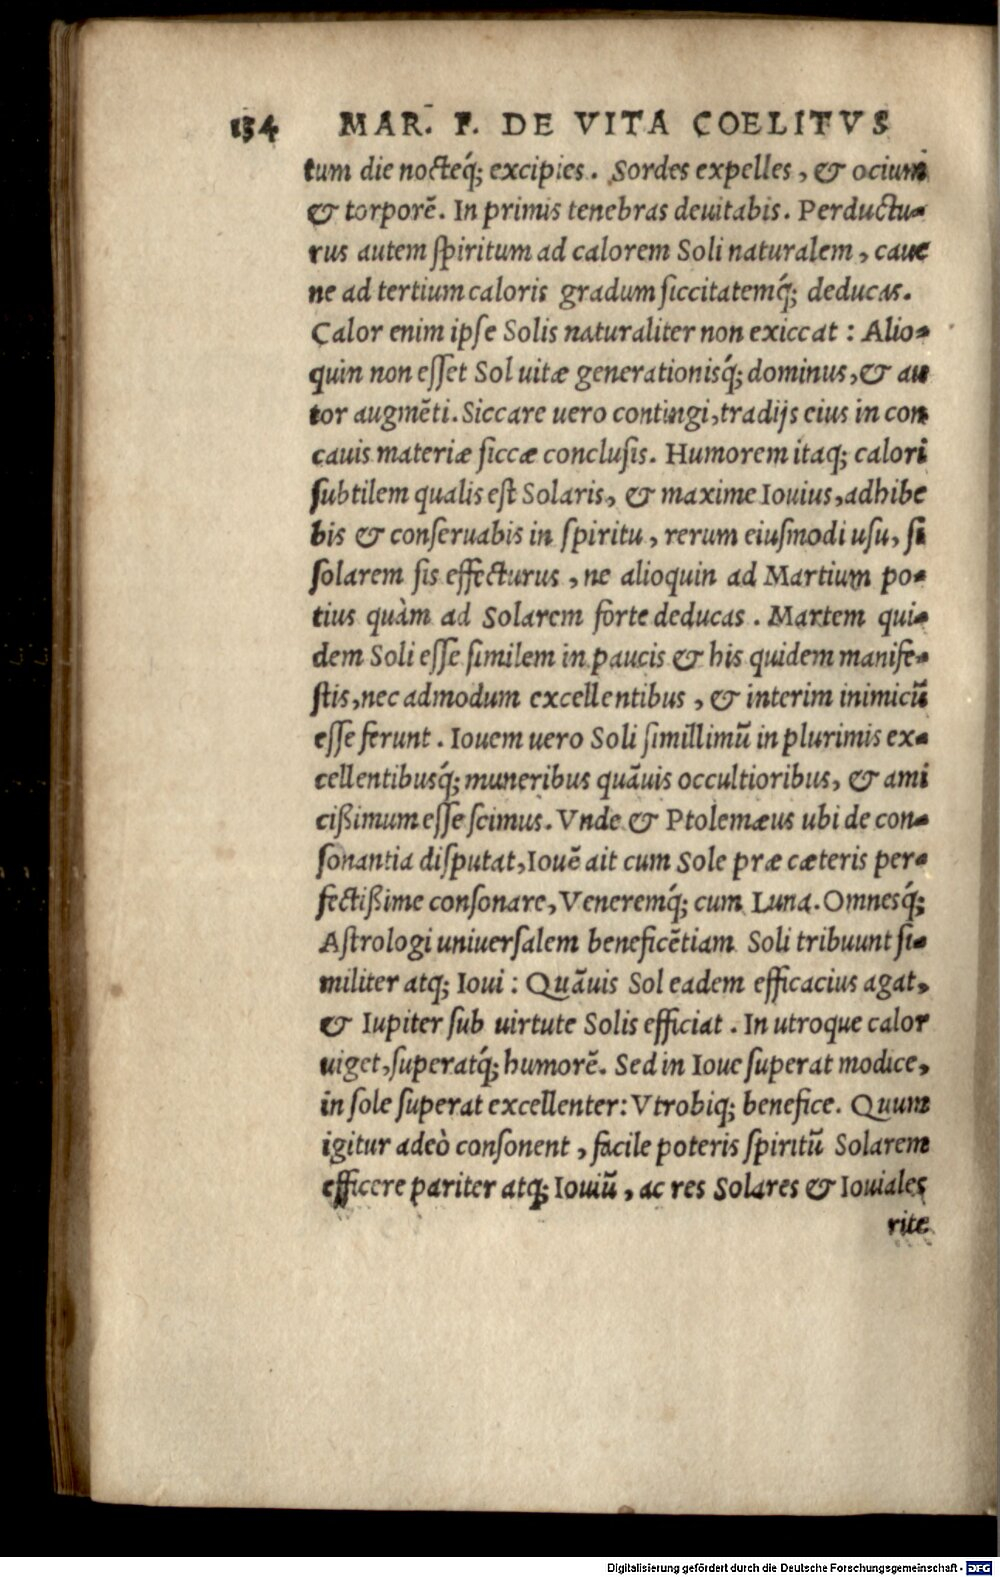 134 MAR. F. DE VITA COELITVS
tum die nocteq́; excipies. Sordes expelles, & ocium
& torporē. In primis tenebras deuitabis. Perductu-
rus autem ſpiritum ad calorem Soli naturalem, caue
ne ad tertium caloris gradum ſiccitatemq́; deducas.
Calor enim ipſe Solis naturaliter non exiccat: Alio-
quin non eſſet Sol uitæ generationisq́; dominus, & au
tor augmēti. Siccare uero contingi, tradijs eius in con
cauis materiæ ſiccæ concluſis. Humorem itaq; calori
ſubtilem qualis eſt Solaris, & maxime Iouius, adhibe
bis & conſeruabis in ſpiritu, rerum eiuſmodi uſu, ſi
ſolarem ſis effecturus, ne alioquin ad Martium po-
tius quàm ad Solarem forte deducas. Martem qui-
dem Soli eſſe ſimilem in paucis & his quidem manife-
ſtis, nec admodum excellentibus, & interim inimicū
eſſe ferunt. Iouem uero Soli ſimillimū in plurimis ex-
cellentibusq́; muneribus quāuis occultioribus, & ami
cißimum eſſe ſcimus. Vnde & Ptolemæus ubi de con-
ſonantia diſputat, Iouē ait cum Sole præ cæteris per-
fectißime conſonare, Veneremq́; cum Luna. Omnesq́;
Aſtrologi uniuerſalem beneficētiam Soli tribuunt ſi-
militer atq; Ioui: Quāuis Sol eadem efficacius agat,
& Iupiter ſub uirtute Solis efficiat. In utroque calor
uiget, ſuperatq́; humorē. Sed in Ioue ſuperat modice,
in ſole ſuperat excellenter: Vtrobiq; benefice. Quum
igitur adeò conſonent, facile poteris ſpiritū Solarem
efficere pariter atq; Iouiū, ac res Solares & Iouiales
rite
Digitalisierung gefördert durch die Deutsche Forschungsgemeinschaft - DFG